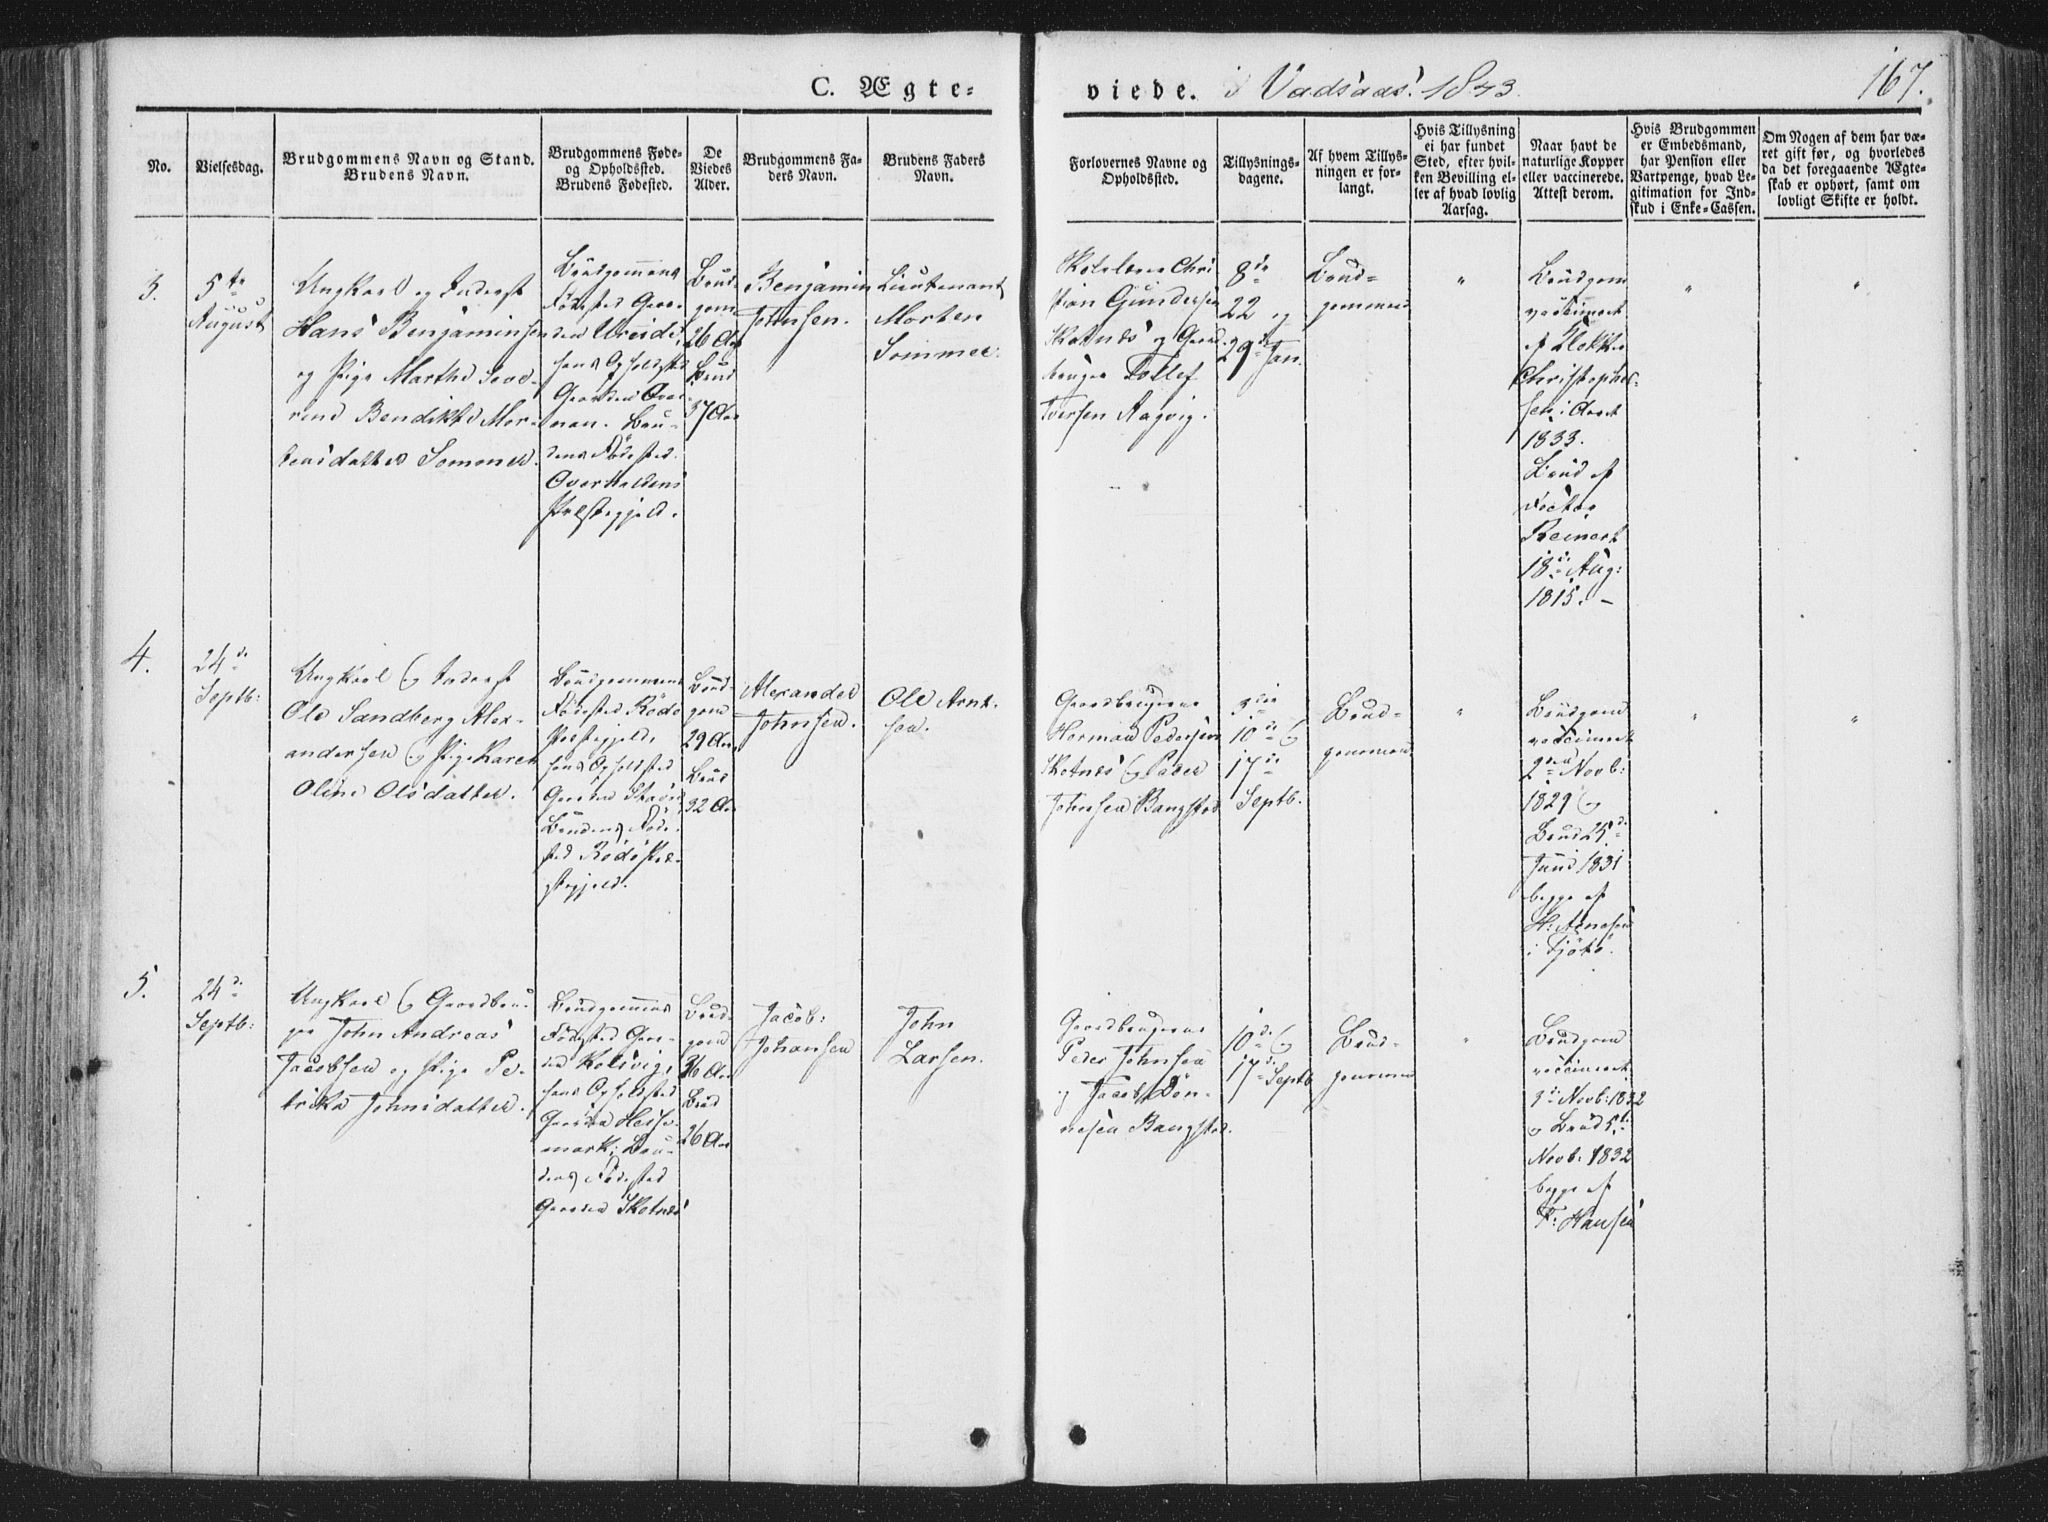 C. Ægte-
viede. i Vadsaas. 1843.
167.
No.
Vielsesdag.
Brudgommens Navn og Stand.
Brudens Navn.
Brudgommens Føde-
og Opholdssted.
Brudens Fødested.
De
Viedes
Alder.
Brudgommens Fa-
ders Navn.
Brudens Faders
Navn.
Forlovernes Navne og
Opholdssted.
Tillysnings-
dagene.
Af hvem Tillys-
ningen er for-
langt.
Hvis Tillysning
ei har fundet
Sted, efter hvil-
ken Bevilling el-
ler af hvad lovlig
Aarsag.
Naar havt de
naturlige Kopper
eller vaccinerede.
Attest derom.
Hvis Brudgommen
er Embedsmand,
har Pension eller
Vartpenge, hvad Le-
gitimation for Ind-
skud i Enke-Cassen.
Om Nogen af dem har væ-
ret gift før, og hvorledes
da det foregaaende Ægte-
skab er ophørt, samt om
lovligt Skifte er holdt.
3.
5te
August
Ungkarl og Inderst
Hans Benjaminsen
og Pige Marthe Seve-
rine Bendikte Mor-
tensdatter Sommer.
Brudgommens
Fødested Gaar-
den
hans Opholdsted
Gaarden
Bru-
dens Fødested
Overhaldens
Præstegjeld.
Brud-
gom
26 Aar
Brud
37 Aar
Benjamin
Johnsen.
Lieutenant
Morten
Sommer.
Skolelærer Chri
stian Gundersen
Skotnes og Gaard
bruger Tollef
Iversen Aagvig.
8de
22 og
29de Jan.
Brud-
gommen
"
Brudgom
vaccineret
af Klokker
Christopher-
sen i Aaret
1833.
Brud af
Doctor
Reinert
18de Aug:
1815. –
"
"
4.
24de
Septb:
Ungkarl og Inderst
Ole Sandberg Alex-
andersen og Pige Karen
Oline Olsdatter.
Brudgommens
Fødested Rødø
Præstegjeld,
hans Opholdsted
Gaarden
Brudens Føde-
sted Rødø Præ-
stegjeld.
Brud-
gom
29 Aar
Brud
32 Aar
Alexander
Johnsen.
Ole Arnt-
sen.
Gaardbrugerne
Herman Pedersen
Skotnes og Peder
Johnsen Bangstad
3die
10de og
17de
Septb.
Brud-
gommen
"
Brudgom
vaccineret
2den Novb:
1829 og
Brud 25de
Juni 1831
begge af
H: Arnesen
i Tjøtø.
"
"
5.
24de
Septb:
Ungkarl og Gaardbru-
ger John Andreas
Jacobsen og Pige Pe-
trike Johnsdatter.
Brudgommens
Fødested Gaar-
den Kolsvig,
hans Opholdsted
Gaarden Heste-
mark; Bru-
dens Fødested
Gaarden Skotnes
Brud-
gom
36 Aar
Brud
26 Aar
Jacob
Johansen
John
Larsen.
Gaardbrugerne
Peder Johnsen
og Jacob Døn-
nesen Bangstad.
10de og
17de Septb
Brud-
gommen
"
Brudgom
vaccineret
3de Novb: 1832
og Brud 5te
Novb: 1832
begge af
F: Hansen